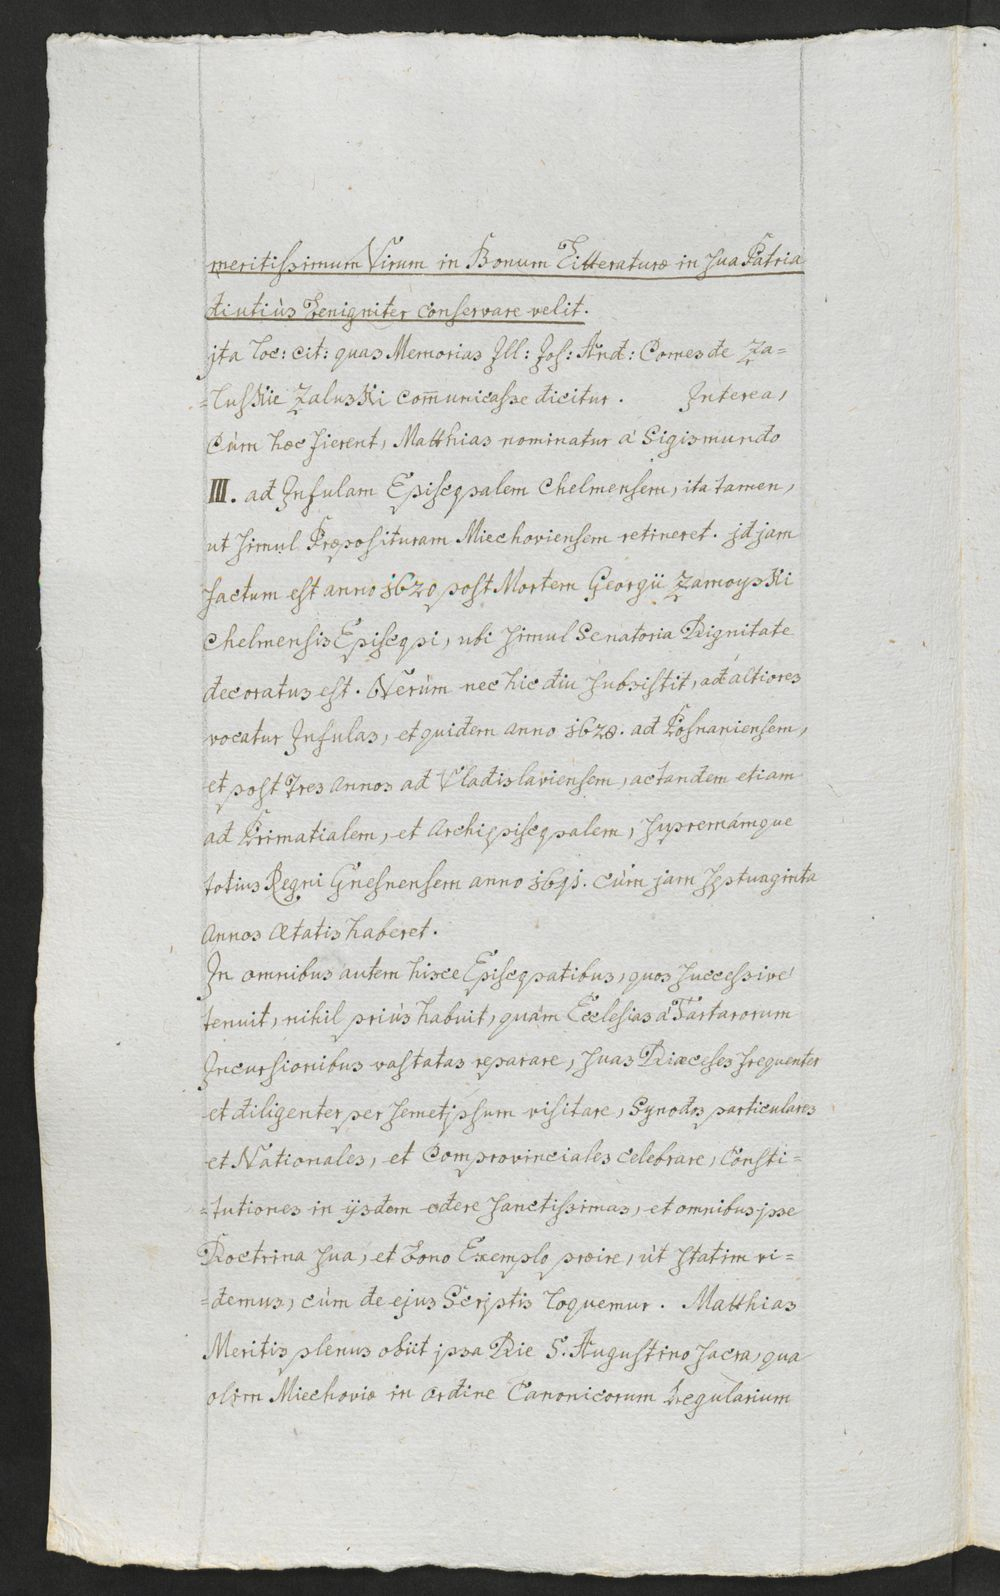 meritissimum Virum in Bonum Litteraturæ in sua Patria
diutiùs benigniter conservare velit.
jta loc: cit: quas Memorias Jll: Jos: And: Comes de Za=
=luskie Zaluski com̄unicasse dicitur. Interea,
cùm hæc fierent, Matthias nominatur à Sigismundo
III. ad Infulam Episcopalem Chelmensem, ita tamen,
ut simul Præposituram Miechoviensem retineret. jd jam
factum est anno 1620 post Mortem Georgii Zamoyski
Chelmensis Episcopi, ubi simul Senatoria Dignitate
decoratus est. Verùm nec hic diu subsistit, ad altiores
vocatur Infulas, et quidem anno 1628. ad Posnaniensem,
et post Tres annos ad Vladislaviensem, ac tandem etiam
ad Primatialem, et Archiepiscopalem, supremámque
totius Regni Gnesnensem anno 1641. cùm jam septuaginta
annos ætatis haberet.
In omnibus autem hisce Episcopatibus, quos successivè
tenuit, nihil priùs habuit, quàm Ecclesias à Tartarorum
Incursionibus vastatas reparare, suas Diæceses frequenter
et diligenter per semetjpsum visitare, Synodos particulares
et Nationales, et Comprovinciales celebrare, Consti=
=tutiones in ijsdem edere sanctissimas, et omnibus jpse
Doctrina sua, et bono Exemplo præire, ùt statim vi=
=demus, cùm de ejus Scriptis loquemur. Matthias
Meritis plenus obiit jpsa Die S. Augustino sacra, qua
olim Miechoviæ in ordine Canonicorum Regularium